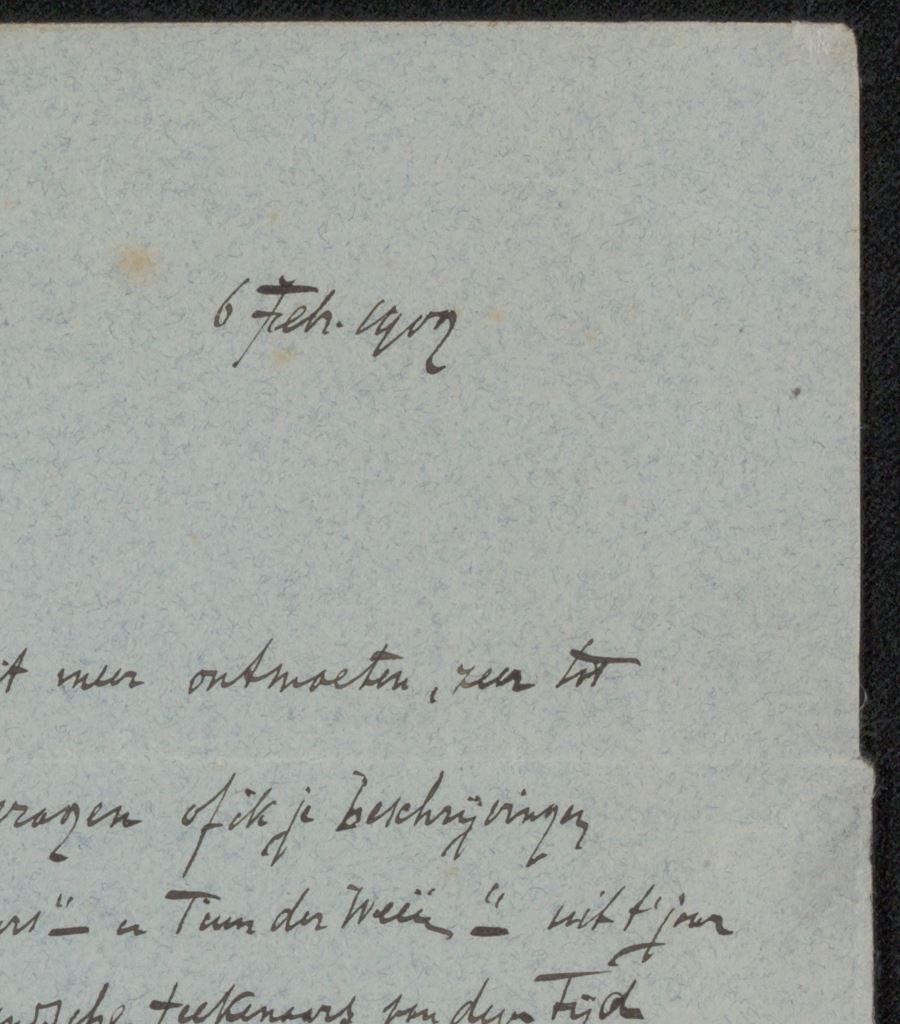 6 Feb. 1909
it meer ontmoeten, zeer tot
vragen of ik je beschrijvingen
ers" — en Tuin der Weeën" — uit 't jaar
teekenaars van dezen Tijd